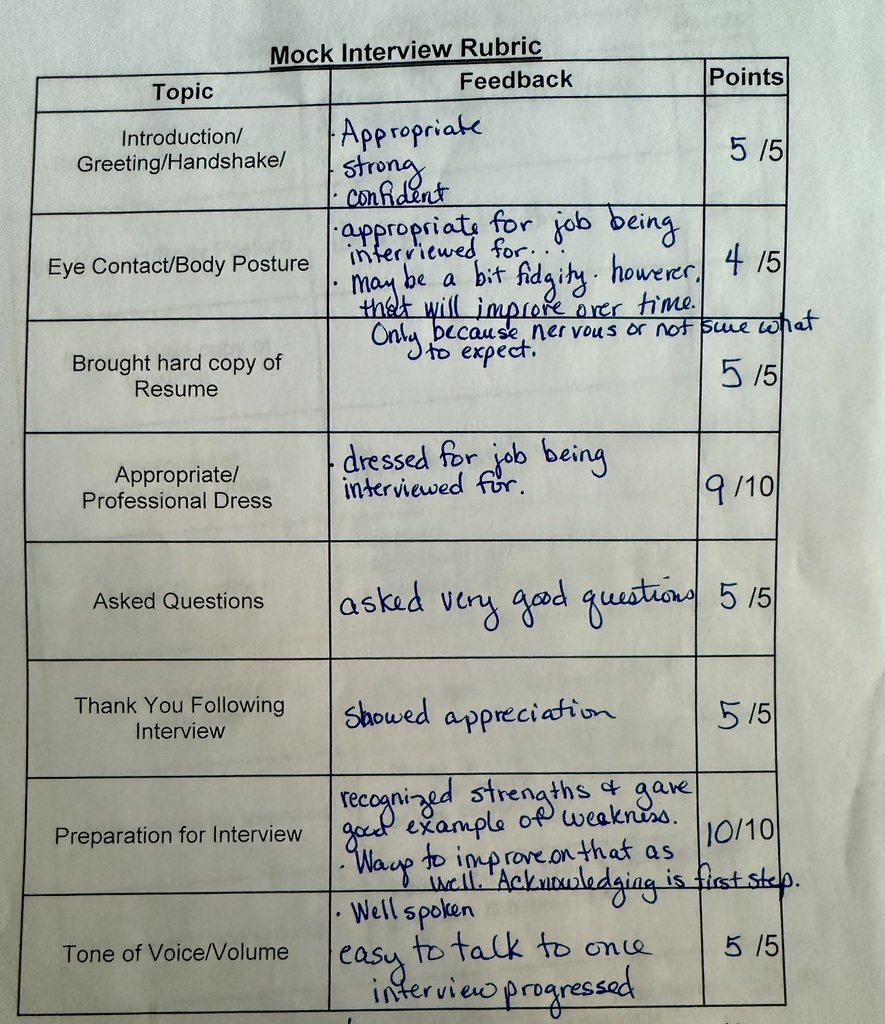 Mock Interview Rubric
Topic Feedback Points
Introduction/
Greeting/Handshake/
· Appropriate
· strong
· confident
5 /5
Eye Contact/Body Posture
· appropriate for job being
interviewed for...
· may be a bit fidgity. however,
that will improve over time.
Only because nervous or not sure what
to expect.
4 /5
Brought hard copy of
Resume
5 /5
Appropriate/
Professional Dress
· dressed for job being
interviewed for.
9 /10
Asked Questions
asked very good questions
5 /5
Thank You Following
Interview
showed appreciation
5 /5
Preparation for Interview
recognized strengths & gave
good example of weakness.
· Ways to improve on that as
well. Acknowledging is first step.
10/10
Tone of Voice/Volume
· Well spoken
easy to talk to once
interview progressed
5 /5